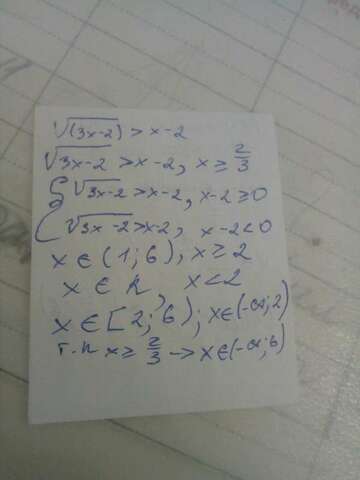 √(3x-2) > x-2
√3x-2 > x-2, x ≥ 2/3
{ √3x-2 > x-2, x-2 ≥ 0
√3x-2 > x-2, x-2 < 0
x ∈ (1; 6), x ≥ 2
x ∈ R x < 2
x ∈ [2; 6); x ∈ (-∞; 2)
т.к x ≥ 2/3 → x ∈ (-∞; 6)